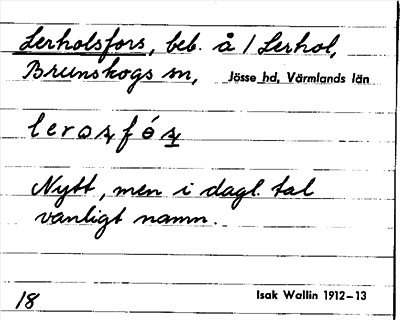 Lerholsfors, beb. å 1 Lerhol,
Brunskogs sn, Jösse hd, Värmlands län
Nytt, men i dagl. tal
vanligt namn.
18 Isak Wallin 1912-13